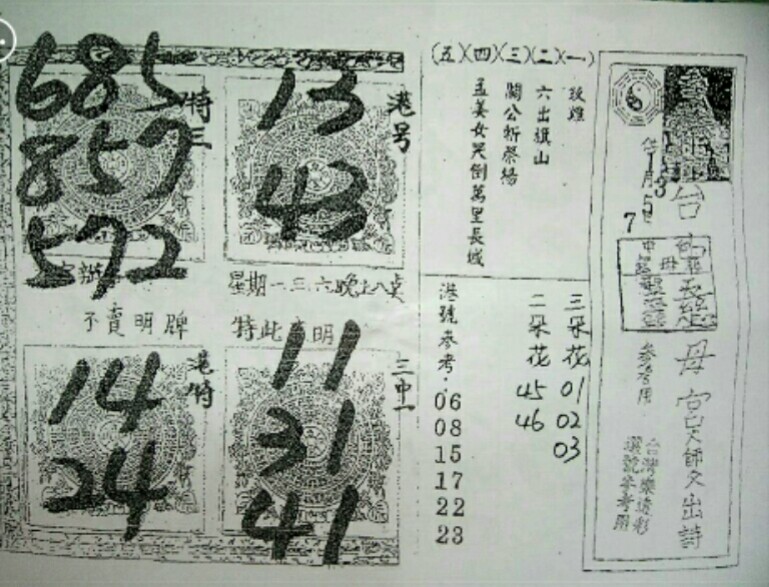 685
857
572
特三
13
43
港号
星期一三六晚上八点
不賣明牌
特此声明
14
24
港特
11
31
41
三中一
(五)(四)(三)(二)(一)
六出祺山
關公斬蔡陽
孟姜女哭倒萬里長城
港號参考.
06
08
15
17
22
23
三朵花 01
02
03
二朵花 45
46
6
13
5
7
母宮
師文出詩
参考用
台灣樂透彩
選號参考用